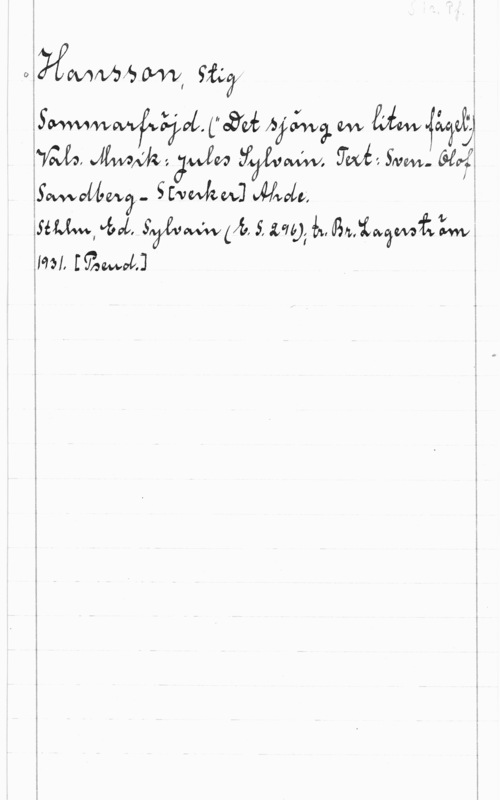 S:r. Pf.
Hansson, Stig
Sommarfröjd. (" Det sjöng en liten fågel".)
Vals. Musik: Jules Sylvain. Text: Sven-Olof
Sandberg - S[verker] Åhde.
Sthlm, Ed. Sylvain (E. S. 296); tr. Br. Lagerström
1931. [Pseud.]